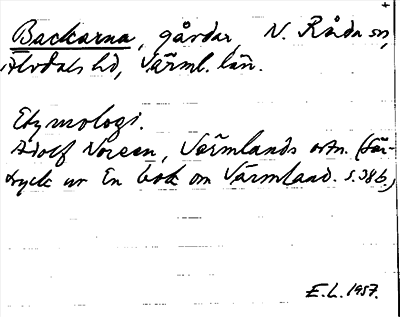 Backarna, gårdar N. Råda sn,
Älvdals hd, Värml. län.
Etymologi.
Adolf Noreen, Värmlands ortn. (Sär-
tryck ur En bok om Värmland. s. 38 b.)
E.L. 1957.